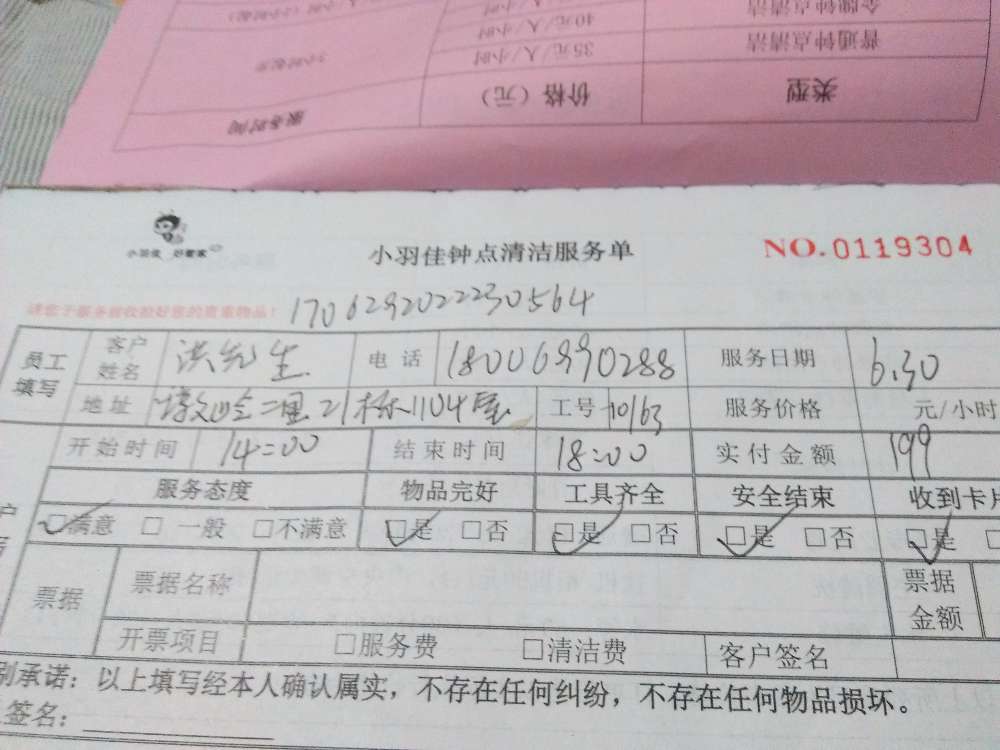 金牌钟点清洁 40元/人/小时
普通钟点清洁 35元/人/小时
类型 价格（元） 服务时间
小羽佳 好管家
小羽佳钟点清洁服务单
NO.0119304
请您于服务前收拾好您的贵重物品！
1706292022230564
员工填写 客户姓名 洪先生 电话 18006990288 服务日期 6.30
地址 二里21栋1104屋 工号 10163 服务价格 元/小时
开始时间 14:00 结束时间 18:00 实付金额 199
服务态度 物品完好 工具齐全 安全结束 收到卡片
□满意 □一般 □不满意 □是 □否 □是 □否 □是 □否 □是
票据 票据名称 票据金额
开票项目 □服务费 □清洁费 客户签名
别承诺：以上填写经本人确认属实，不存在任何纠纷，不存在任何物品损坏。
签名：